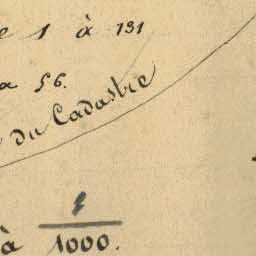 e 1 à 131
a 56.
du Cadastre
à 1/1000.